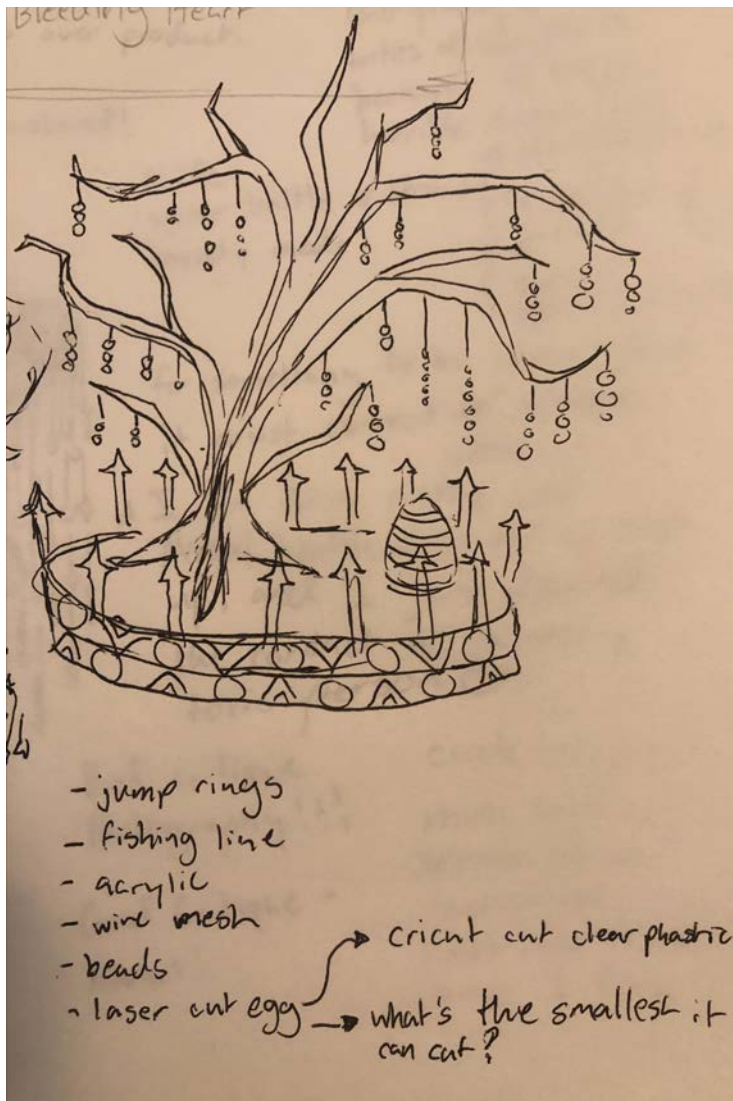 Bleeding Heart
- jump rings
- fishing line
- acrylic
- wire mesh
- beads
- laser cut egg
cricut cut clear plastic
what's the smallest it
can cut?